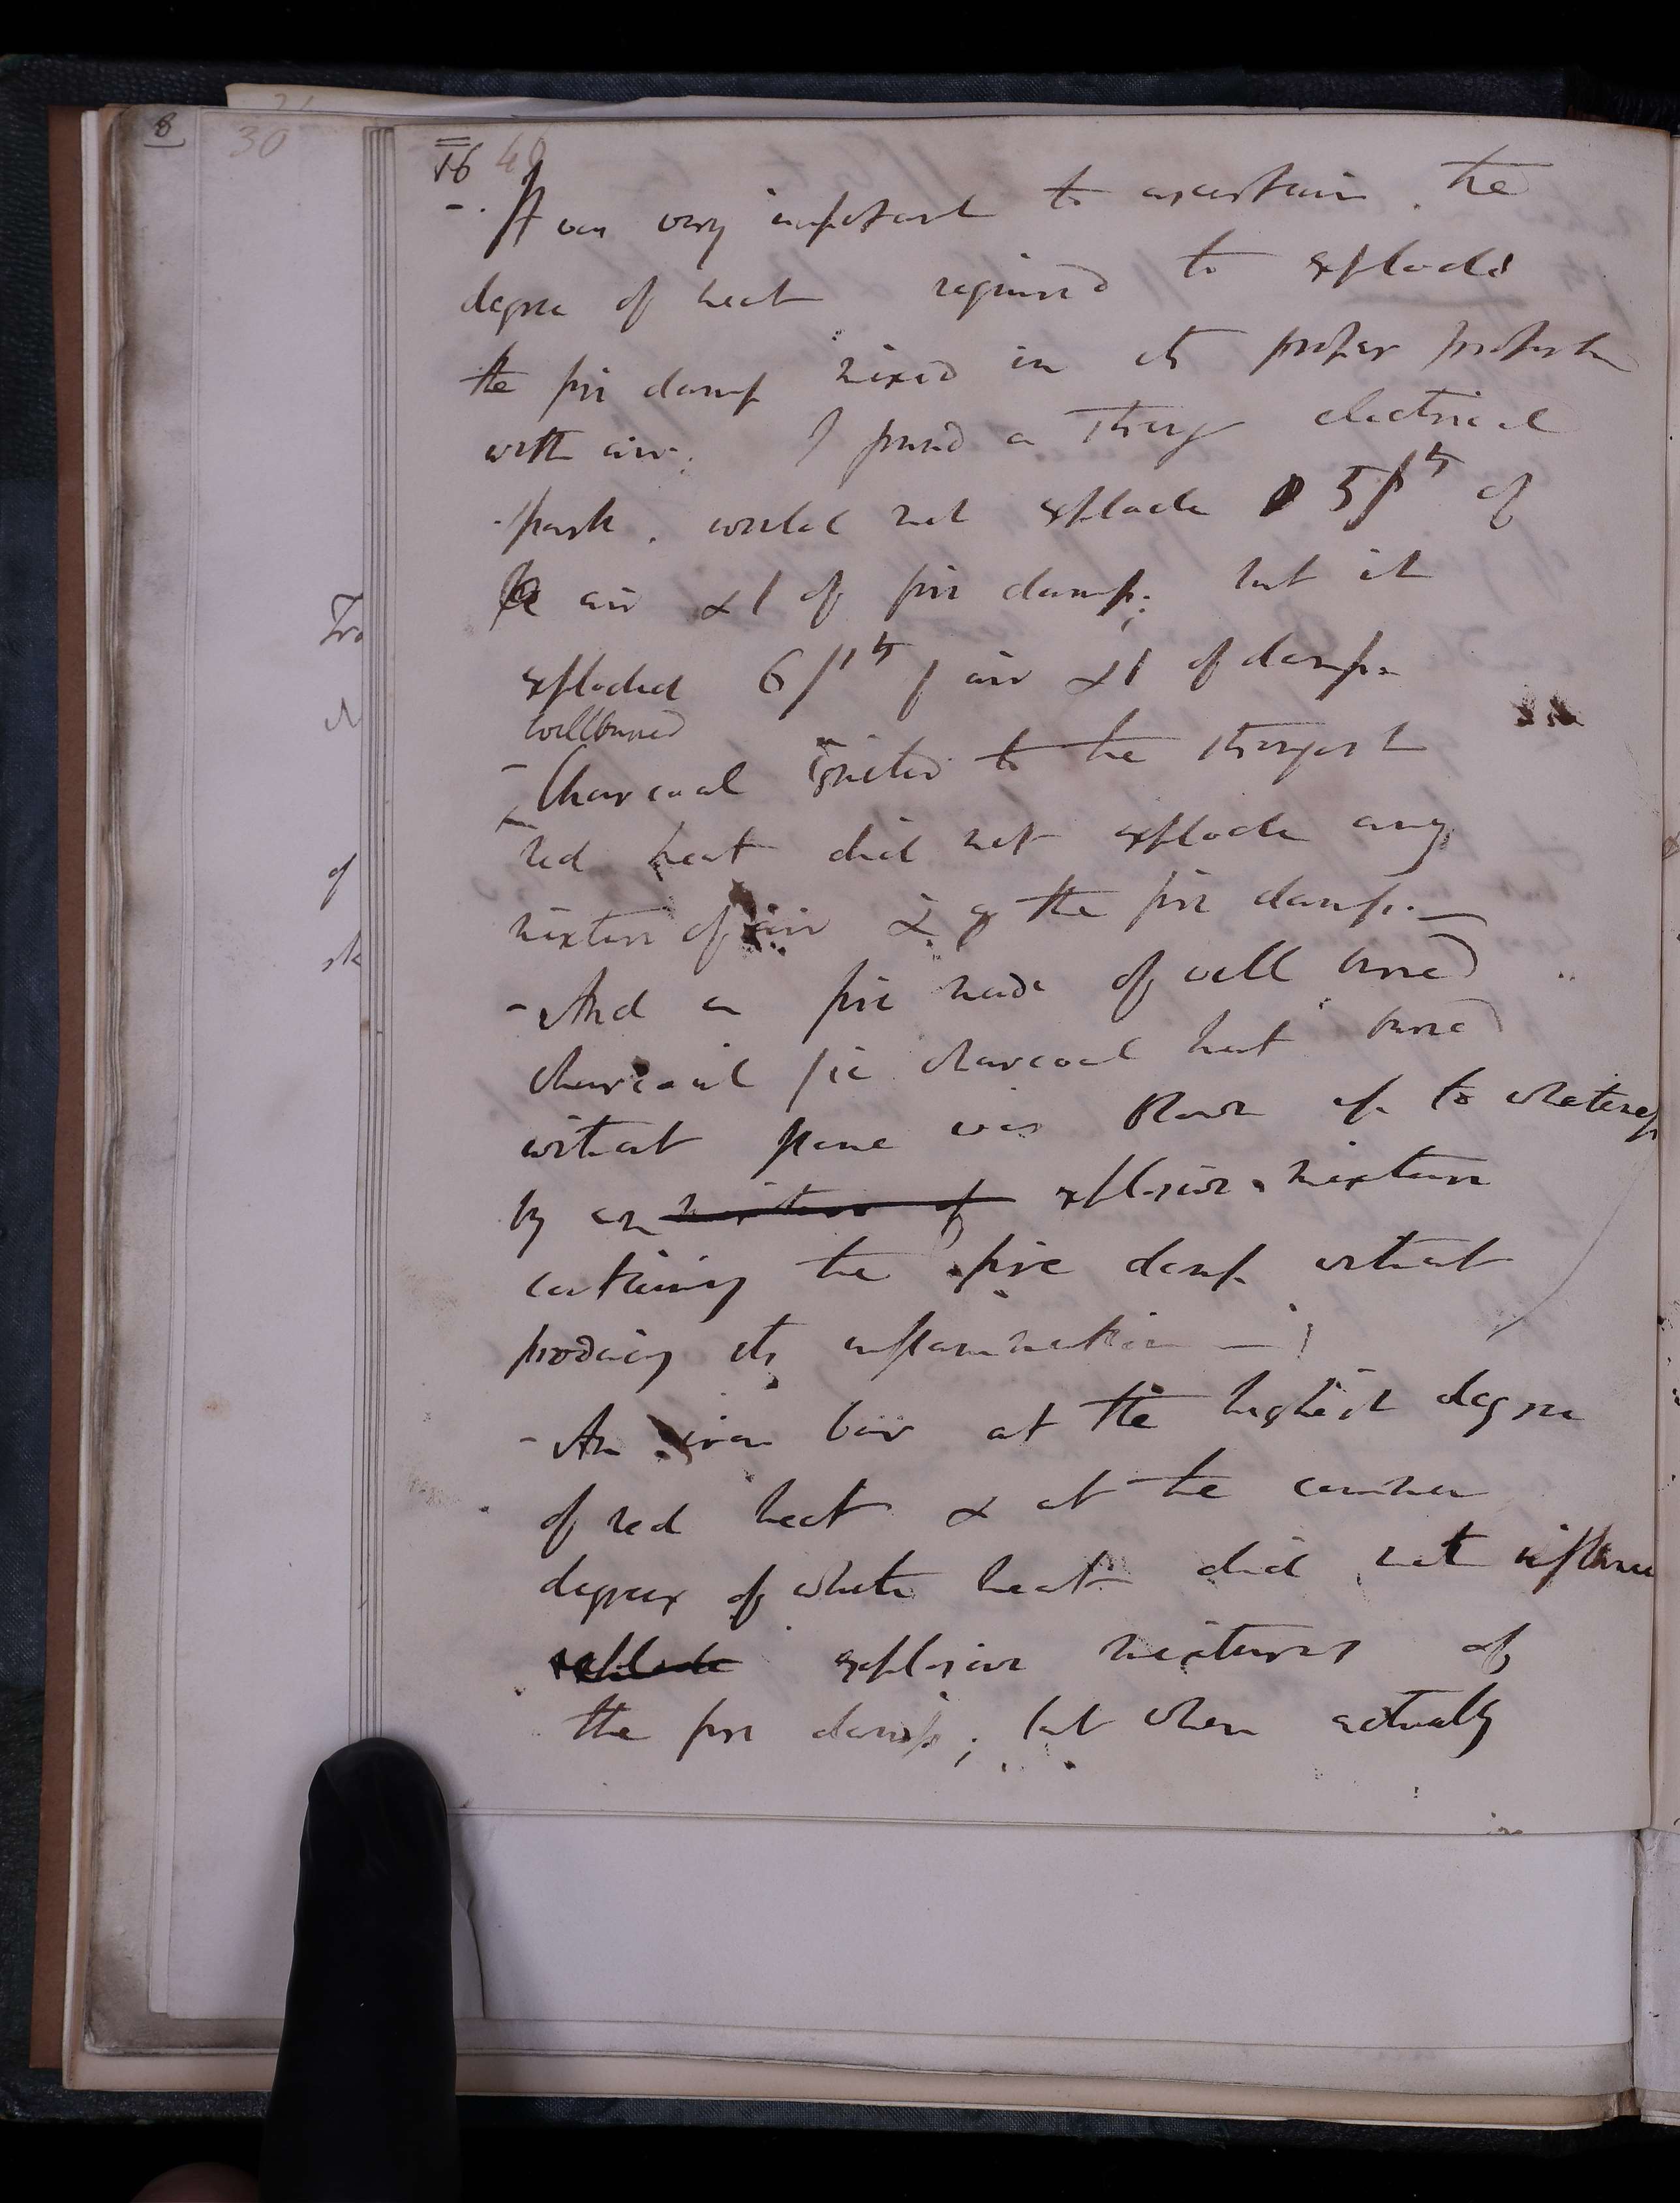 8
30
16 40
-. It was very important to ascertain the
degree of heat required to explode
the fire damp mixed in its proper proportion
with air. I found a strong electrical
spark would not explode 5 pts of
air & 1 of fire damp: but it
exploded 6 pts of air & 1 of damp.
well burned
- Charcoal ignited to the strongest
red heat did not explode any
mixture of air & of the fire damp. —
- And a fire made of well burned
charcoal ie charcoal that burned
without flame was blown up to whiteness
by an mixture of explosive mixture
containing the fire damp without
producing its inflammation —
- An iron bar at the highest degree
of red heat & at the common
degree of white heat did not inflame
explode explosive mixtures of
the fire damp; but when actually
Tra
of
sk